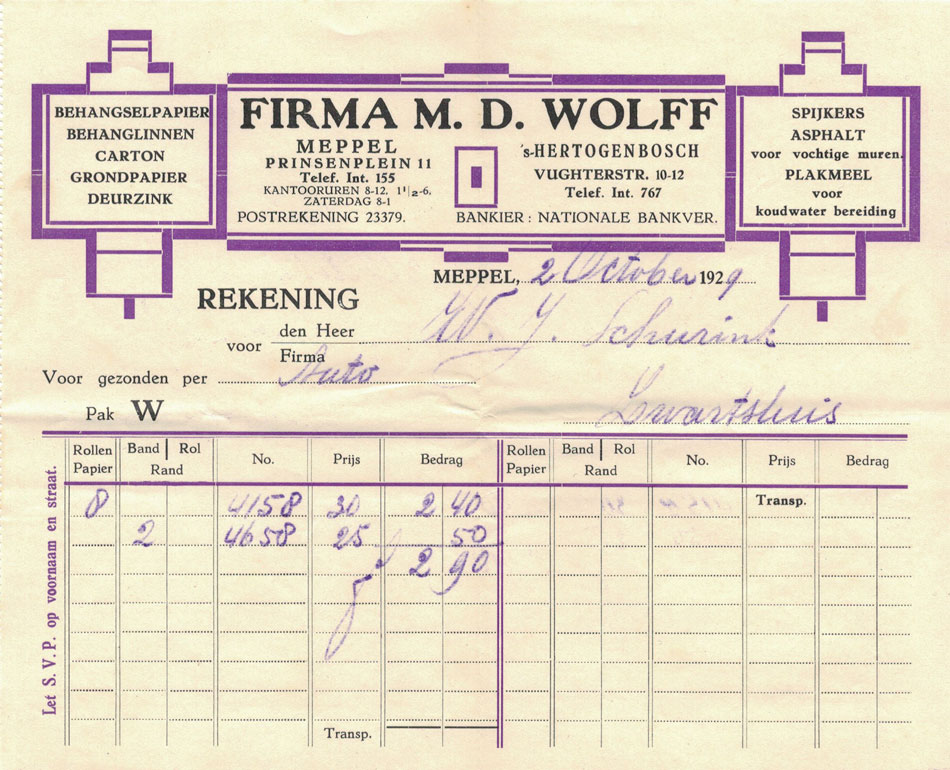 BEHANGSELPAPIER
BEHANGLINNEN
CARTON
GRONDPAPIER
DEURZINK
FIRMA M. D. WOLFF
MEPPEL
PRINSENPLEIN 11
Telef. Int. 155
KANTOORUREN 8-12, 1 1/2-6,
ZATERDAG 8-1
POSTREKENING 23379.
's-HERTOGENBOSCH
VUGHTERSTR. 10-12
Telef. Int. 767
BANKIER: NATIONALE BANKVER.
SPIJKERS
ASPHALT
voor vochtige muren.
PLAKMEEL
voor
koudwater bereiding
MEPPEL, 2 October 1929
REKENING
voor den Heer W. J. Schurink
Firma
Voor gezonden per Auto
Pak W Zwartsluis
Let S. V. P. op voornaam en straat.
Rollen Papier Band Rol Rand No. Prijs Bedrag Rollen Papier Band Rol Rand No. Prijs Bedrag
8 4158 30 2 40 Transp.
2 4658 25 50
2 90
Transp.